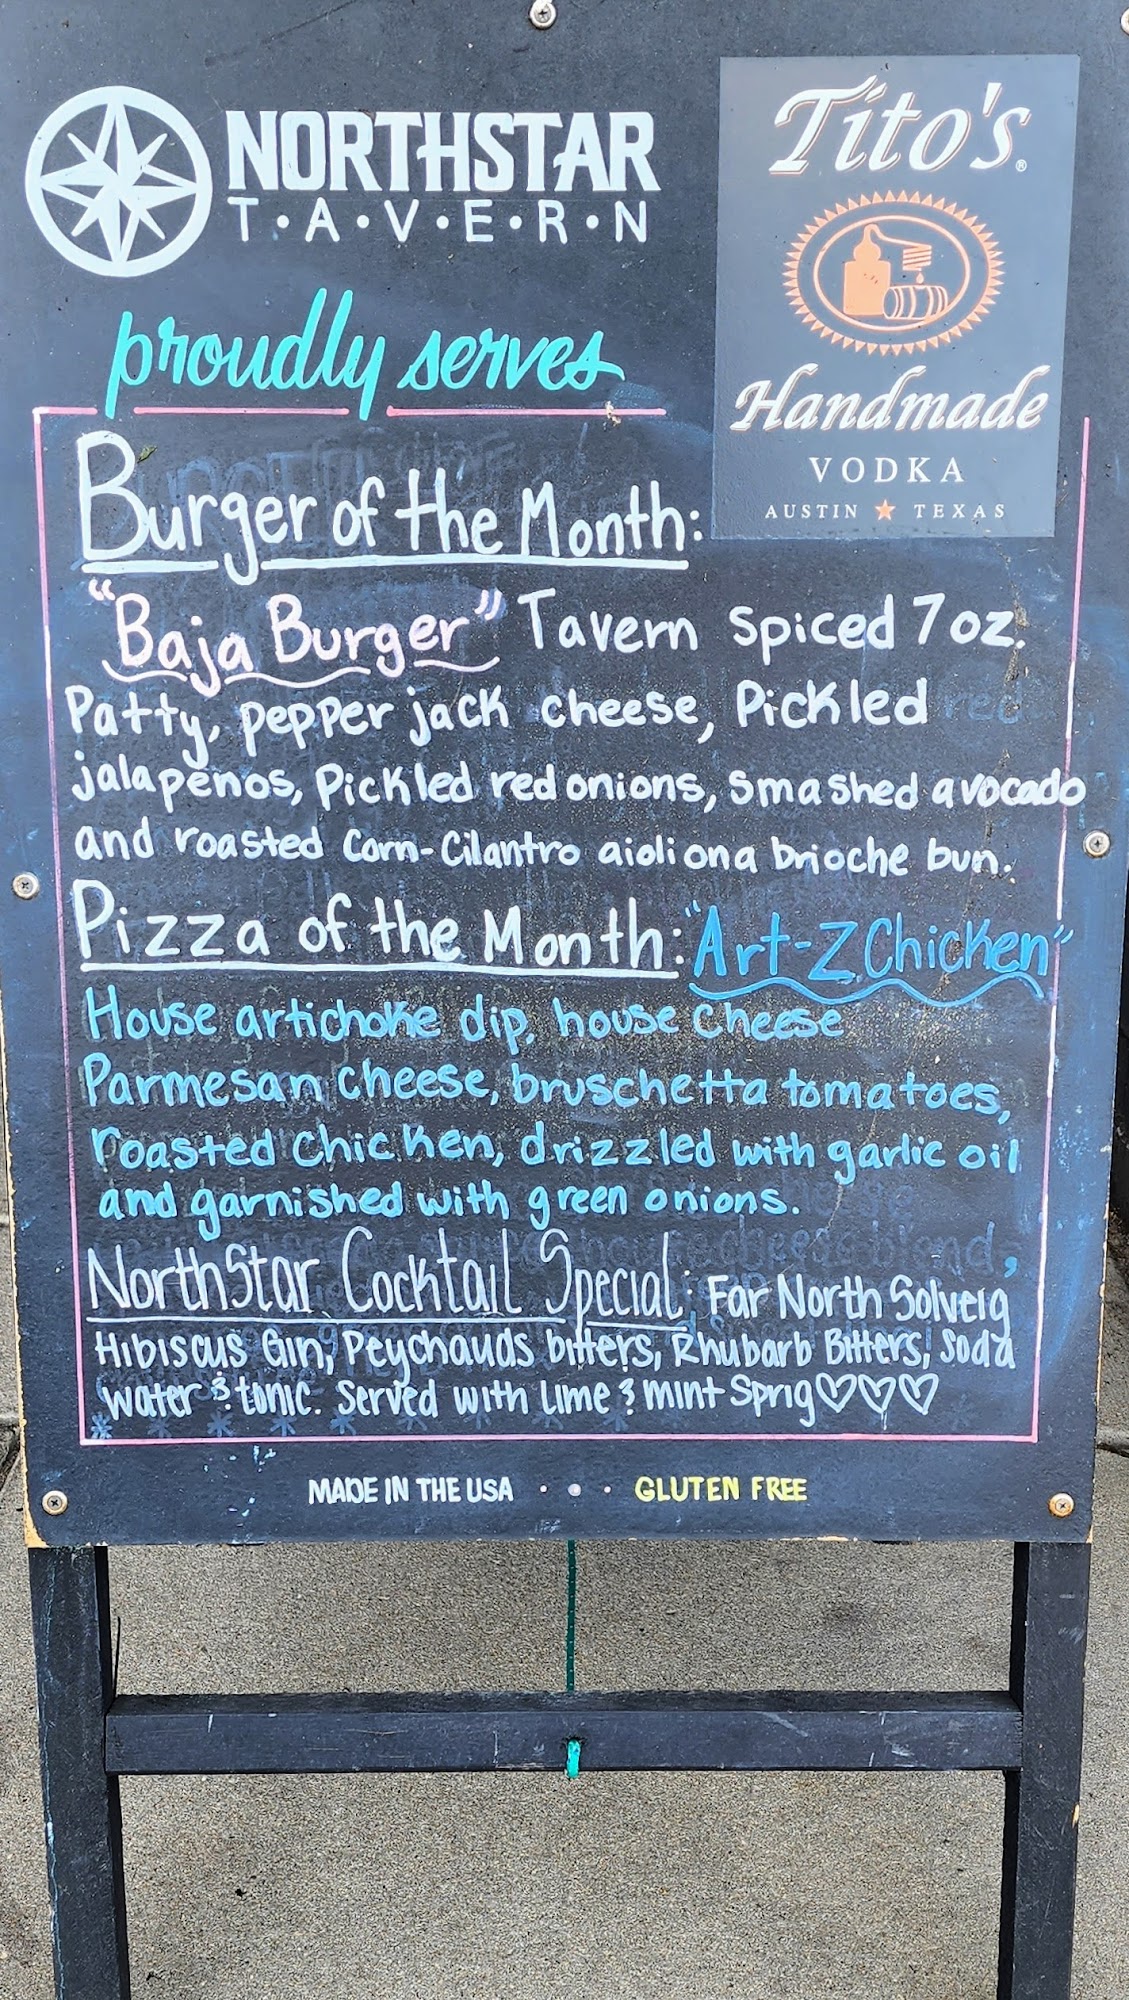 NORTHSTAR
T·A·V·E·R·N
Tito's®
Handmade
VODKA
AUSTIN ★ TEXAS
proudly serves
Burger of the Month:
"Baja Burger" Tavern Spiced 7 oz.
Patty, pepper jack cheese, Pickled
jalapeños, Pickled red onions, Smashed avocado
and roasted Corn-Cilantro aioli on a brioche bun.
Pizza of the Month: "Art-Z Chicken"
House artichoke dip, house cheese
Parmesan cheese, bruschetta tomatoes,
roasted chicken, drizzled with garlic oil
and garnished with green onions.
NorthStar Cocktail Special: Far North Solveig
Hibiscus Gin, Peychauds bitters, Rhubarb Bitters, Soda
water & tonic. Served with lime & mint Sprig♡♡♡
MADE IN THE USA · • · GLUTEN FREE